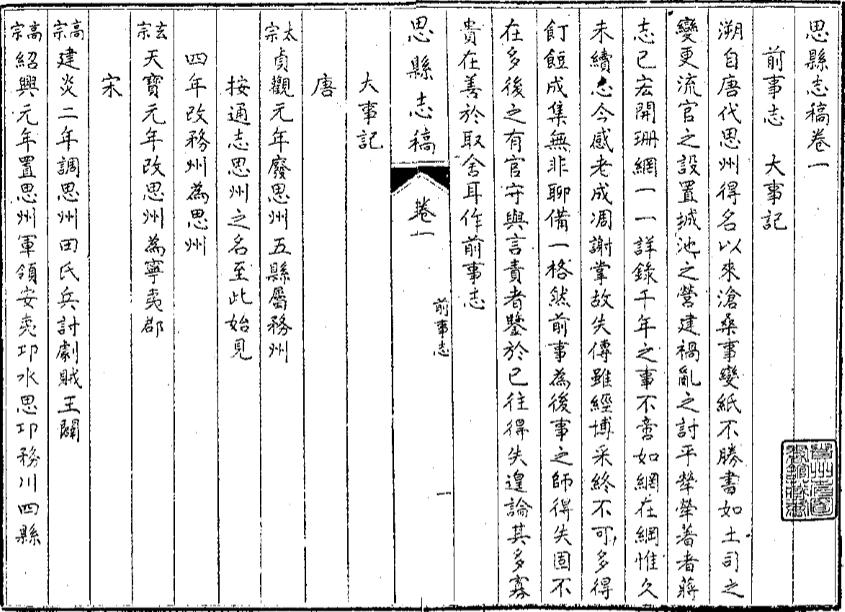 思縣志稿卷一
前事志　大事記
溯自唐代思州得名以來滄桑事變紙不勝書如土司之
變更流官之設置城池之營建禍亂之討平犖犖著者蔣
志已宏開珊網一一詳錄千年之事不啻如網在綱惟久
未續志今感老成凋謝掌故失傳雖經博采終不可多得
飣餖成集無非聊備一格然前事為後事之師得失固不
在多後之有官守與言責者鑒於已往得失遑論其多寡
貴在善於取舍耳作前事志
思縣志稿　卷一　前事志　一
大事記
唐
太宗貞觀元年廢思州五縣屬務州
按通志思州之名至此始見
四年改務州為思州
玄宗天寶元年改思州為寧夷郡
宋
高宗建炎二年調思州田氏兵討劇賊王闢
高宗紹興元年置思州軍領安夷邛水思邛務川四縣